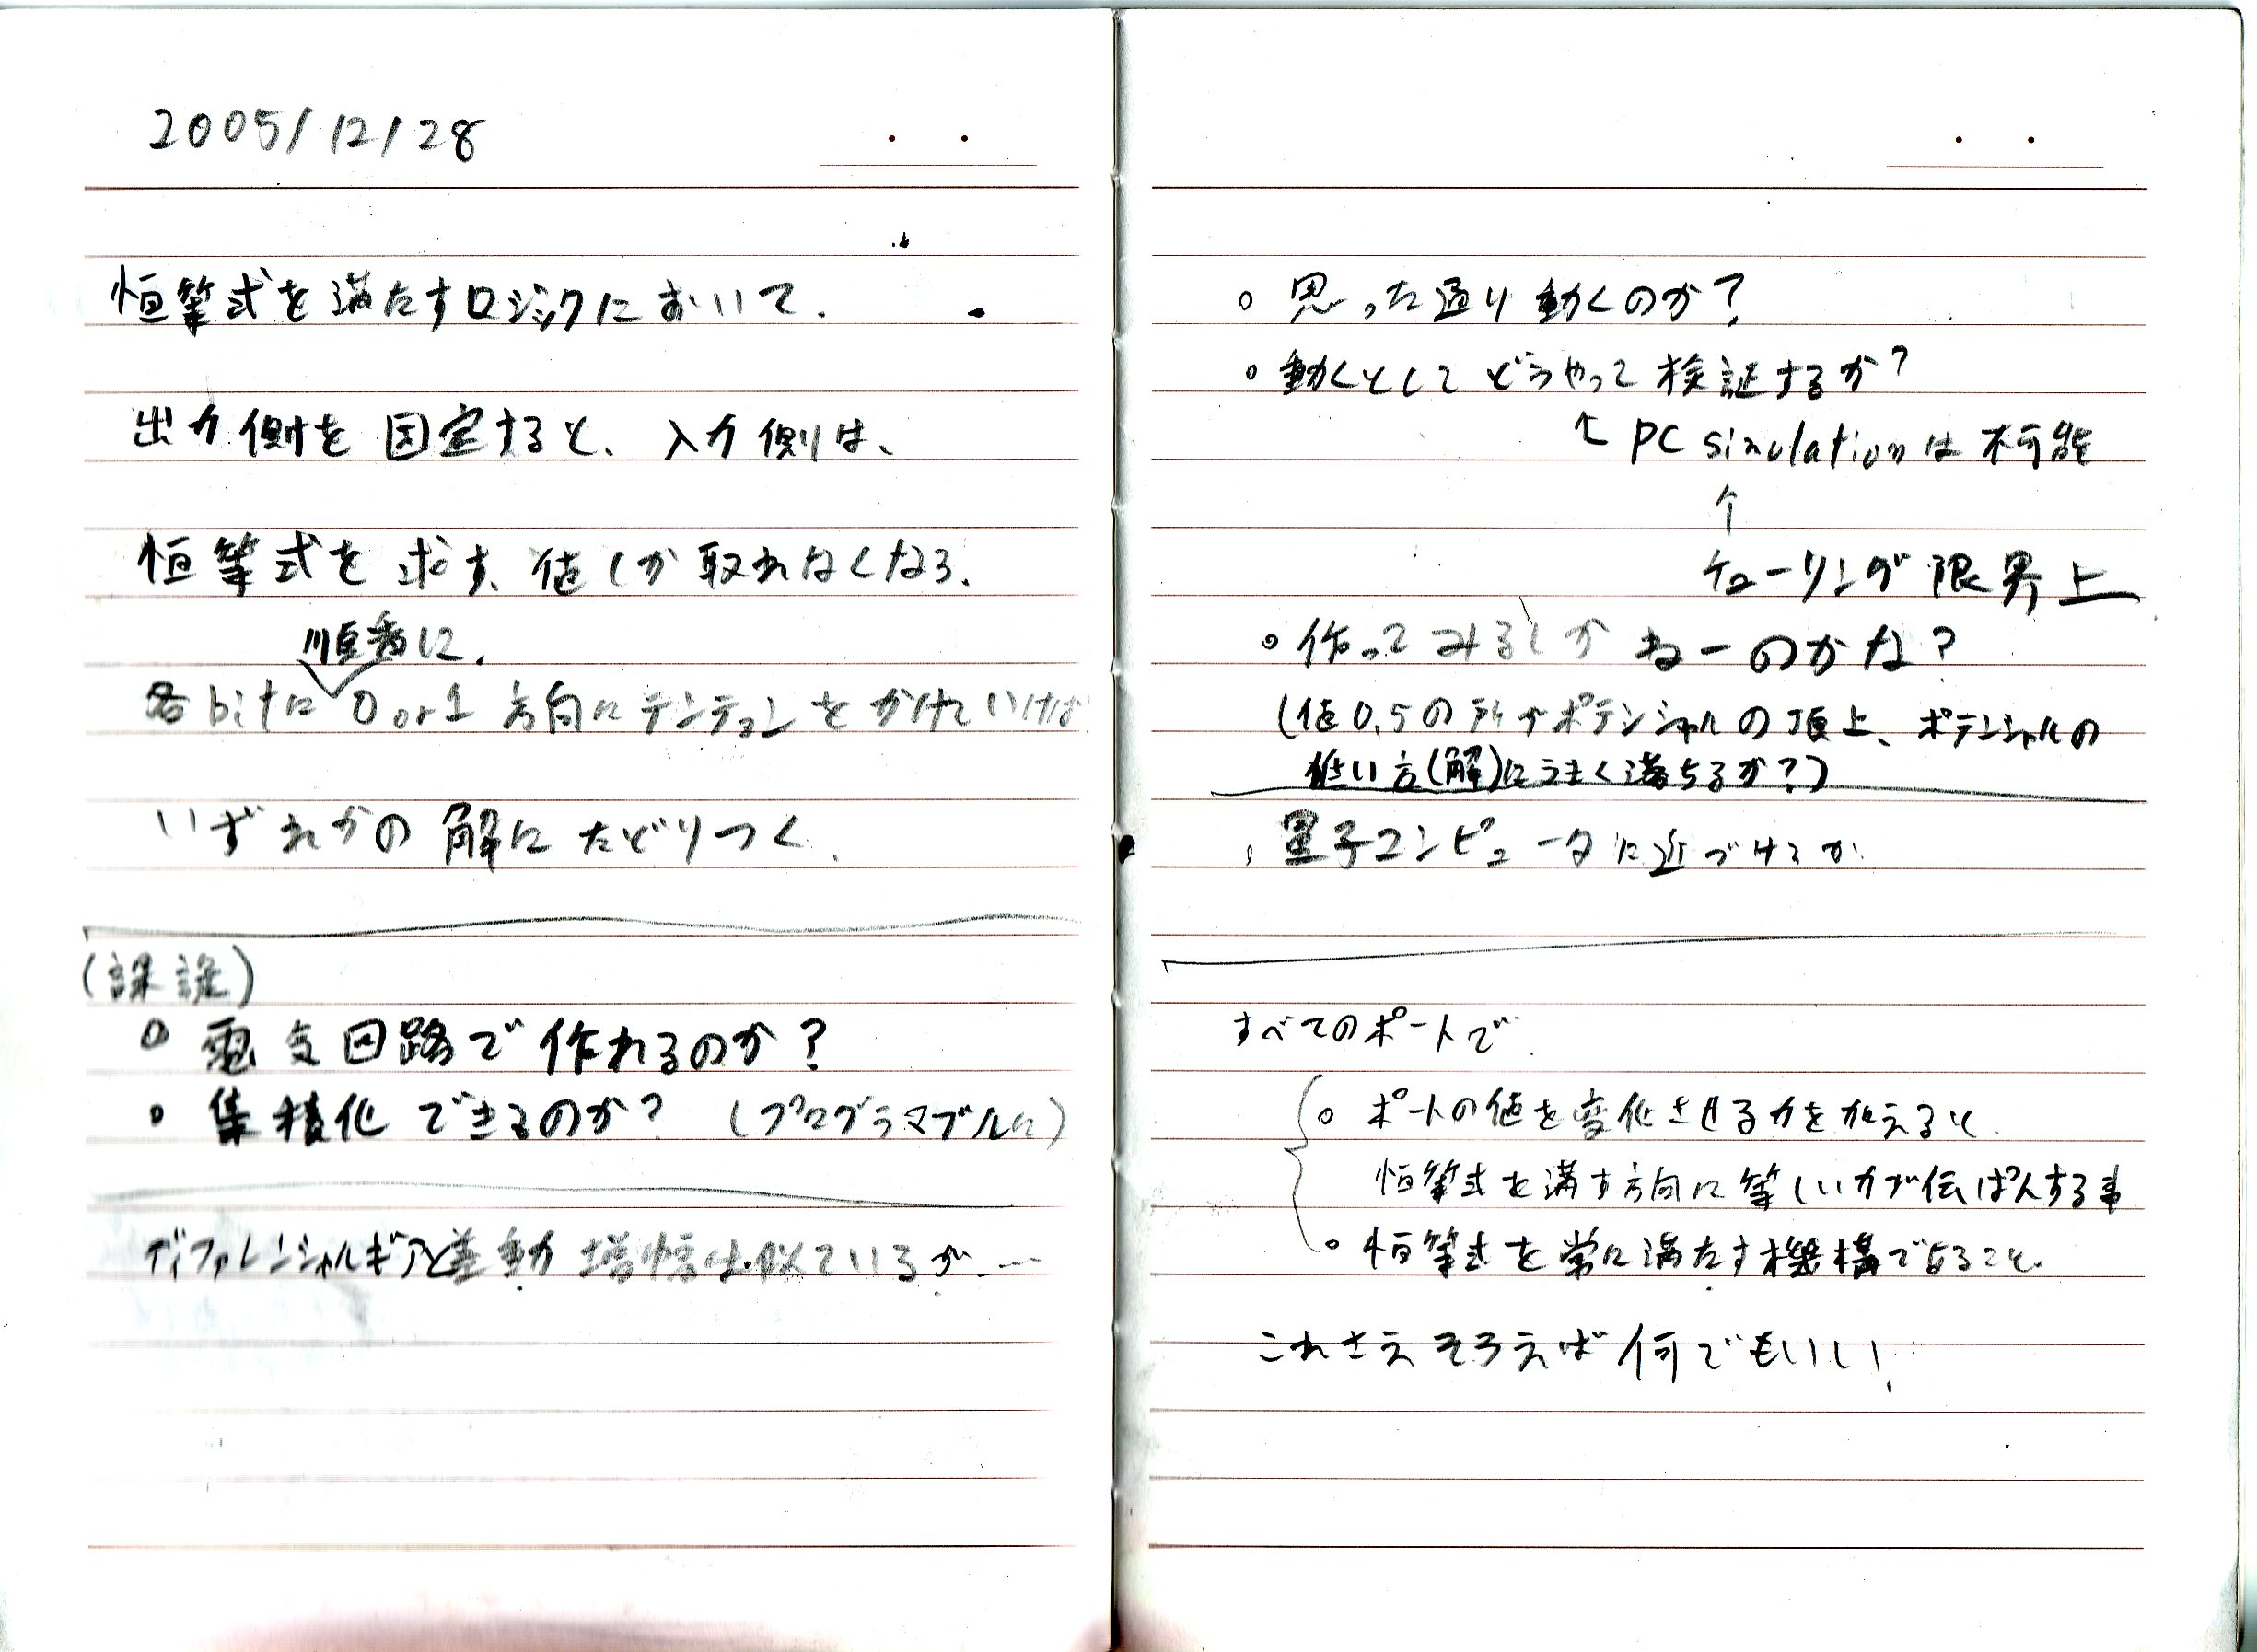 2005/12/28
恒等式を満たすロジックにおいて.
出力側を固定すると、入力側は、
恒等式を求す、値しか取れなくなる.
順番に.
各bitに 0 or 1 方向にテンテョンをかけていけば
いずれかの解にたどりつく.
(課題)
○ 電気回路で作れるのか?
○ 集積化できるのか? (プログラマブルに)
ディファレンシャルギアと差動増幅は似ているが…
○ 思った通り動くのか?
○ 動くとしてどうやって検証するか?
↑ PC simulationは不可能
↑
チューリング限界上
○ 作ってみるしかねーのかな?
(値0.5の所がポテンシャルの頂上、ポテンシャルの
低い方(解)にうまく満ちるか?)
量子コンピュータに近づけるか
すべてのポートで.
○ ポートの値を変化させる力を加えると.
恒等式を満す方向に等しい力が伝ぱんする事
○ 恒等式を常に満たす機構であること.
これさえそろえば何でもいい!